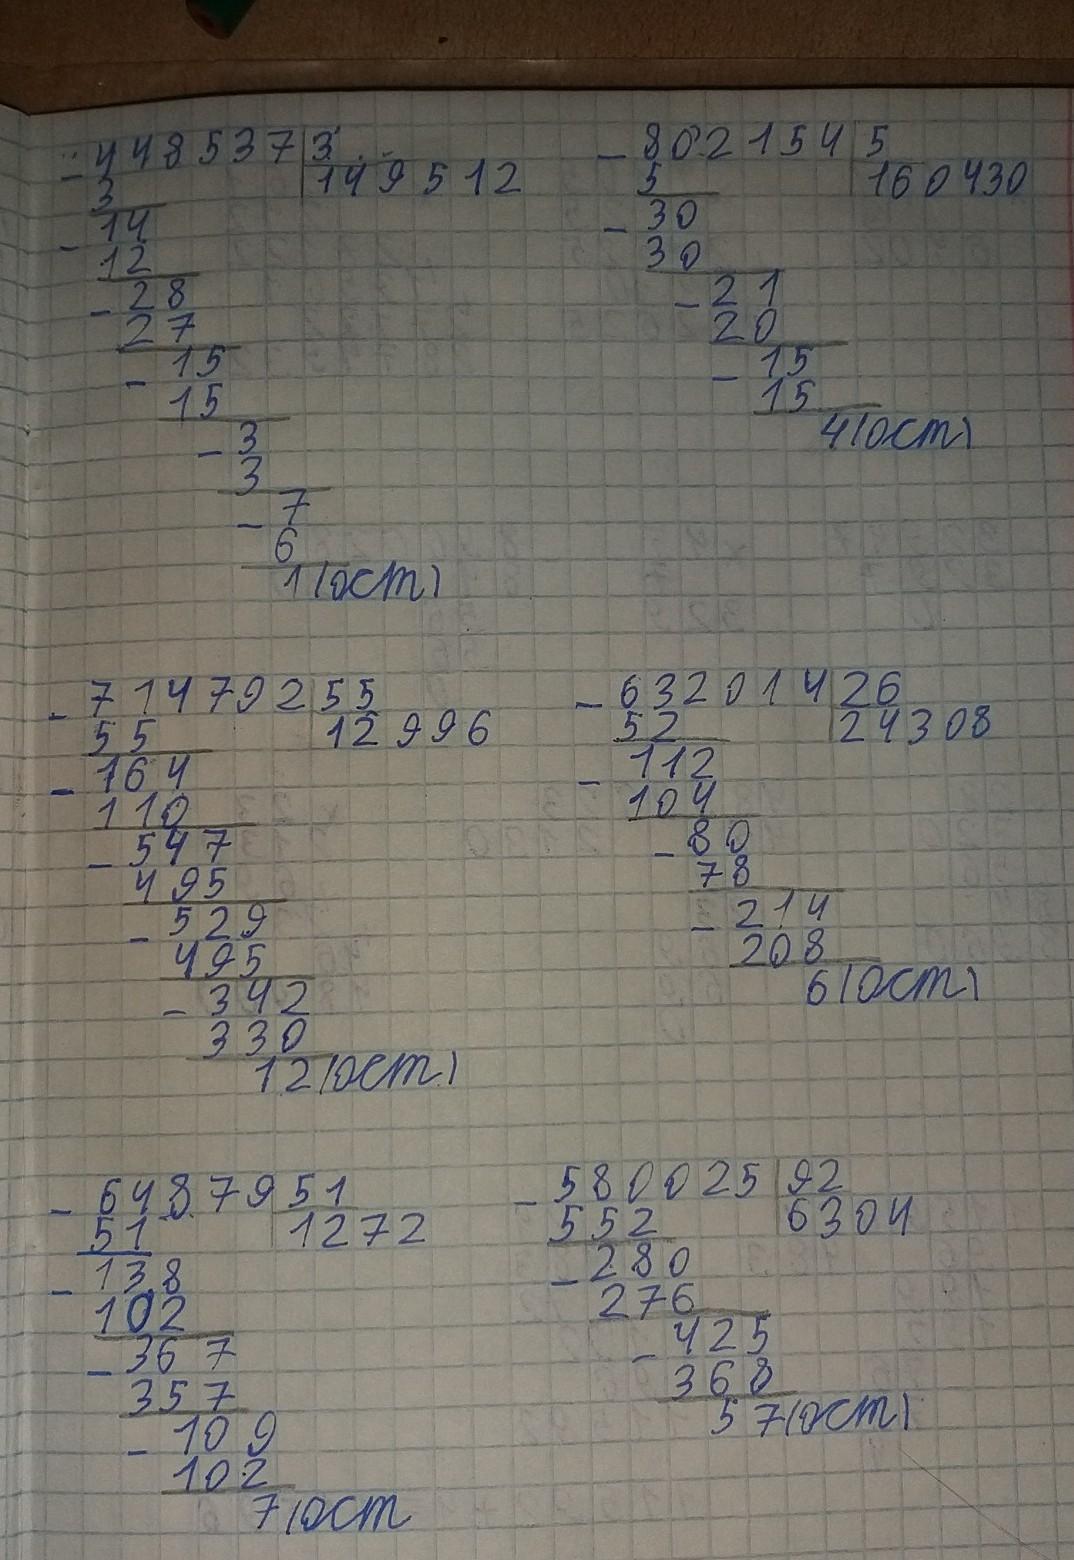 - 448537 | 3
3 | 149512
- 14
12
- 28
27
- 15
15
- 3
3
- 7
6
1 (ост)
- 802154 | 5
5 | 160430
- 30
30
- 21
20
- 15
15
4 (ост)
- 714792 | 55
55 | 12996
- 164
110
- 547
495
- 529
495
- 342
330
12 (ост)
- 632014 | 26
52 | 24308
- 112
104
- 80
78
- 214
208
6 (ост)
- 64879 | 51
51 | 1272
- 138
102
- 367
357
- 109
102
7 (ост
- 580025 | 92
552 | 6304
- 280
276
- 425
368
57 (ост)